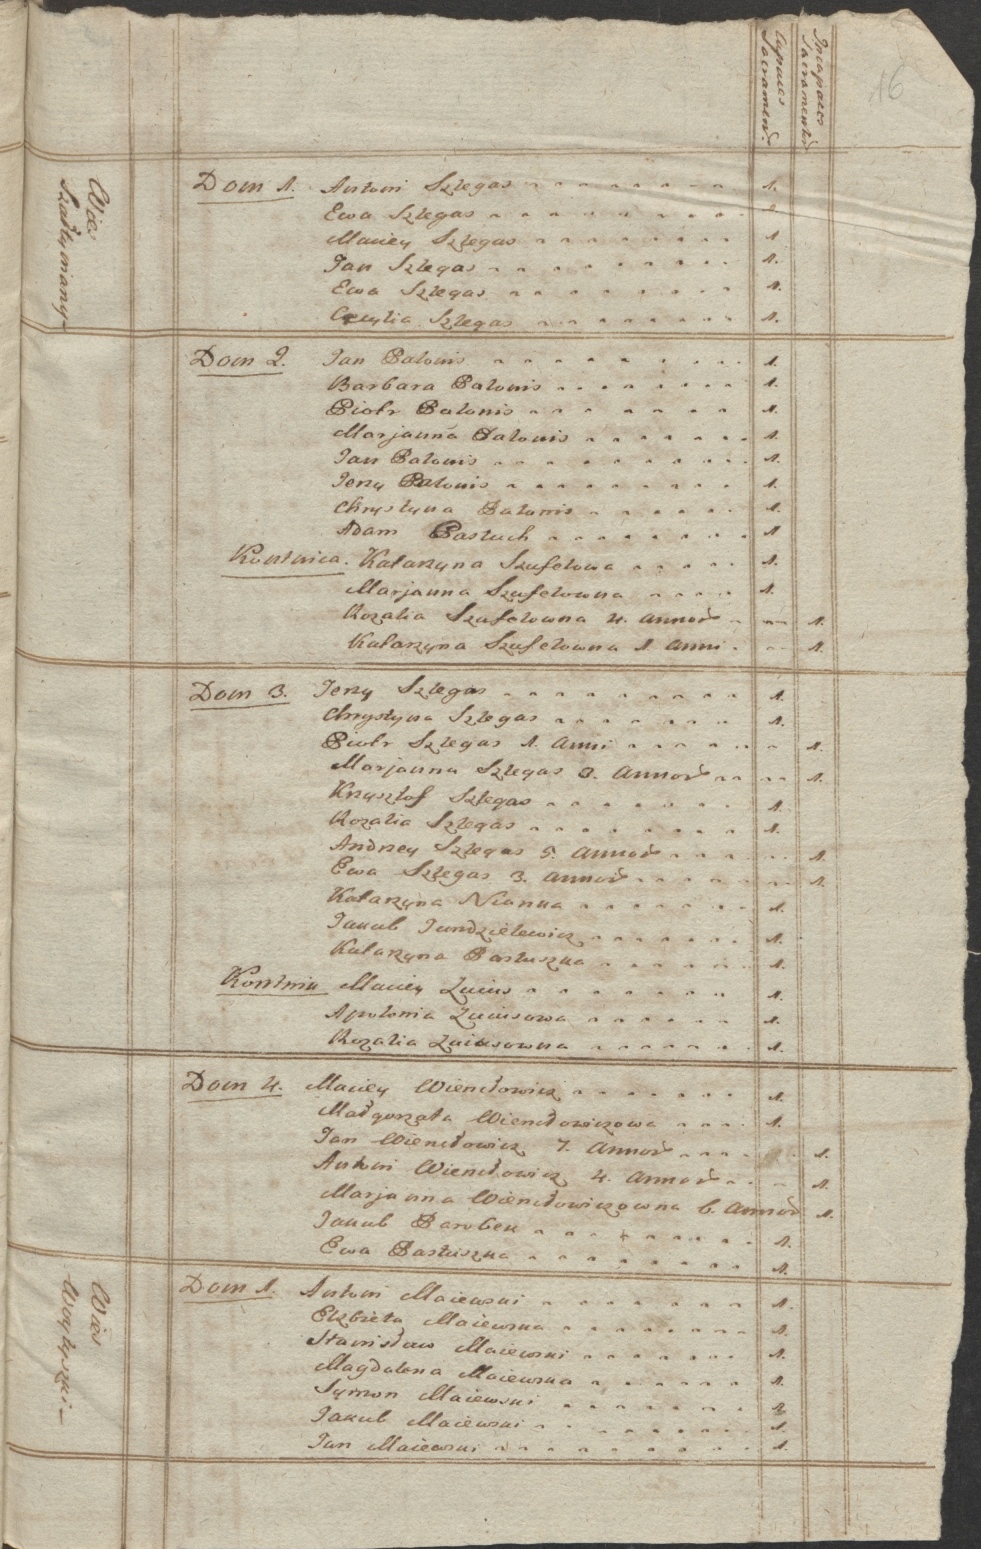 16
Capaces
Sacramen.
Incapaces
Sacramentor
Wies
Szałtymany
Dom 1. Antoni Szlegas 1.
Ewa Szlegas
Maciey Szlegas 1
Jan Szlegas 1.
Ewa Szlegas 1.
Cecylia Szlegas 1.
Dom 2. Jan Patonis 1.
Barbara Patonis 1.
Piotr Patonis 1.
Marjanna Patonis 1.
Jan Patonis 1.
Jerzy Patonis 1.
Chrystyna Patonis 1.
Adam Pastuch 1
Komtnica. Katarzyna Szufelowa 1.
Marjanna Szufelowna 1.
Rozalia Szufelowna 4. annor 1.
Katarzyna Szufelowna 1 anni 1.
Dom 3. Jerzy Szlegas 1.
Chrystyna Szlegas 1.
Piotr Szlegas 1. anni 1.
Marjanna Szlegas 3. annor 1.
Krzysztof Szlegas 1.
Rozalia Szlegas 1.
Andrzey Szlegas 5. annor 1.
Ewa Szlegas 3. annor 1.
Katarzyna Nianka 1.
Jakub Jundzielewicz 1.
Katarzyna Pastuszka 1.
Komtnik Maciey Zuius 1.
Apolonia Zuiusowa 1.
Rozalia Zuiusowna 1.
Dom 4. Maciey Wiencłowicz 1.
Małgorzata Wiencłowiczowa 1.
Jan Wiencłowicz 7. annor 1.
Antoni Wiencłowicz 4. annor 1.
Marjanna Wiencłowiczowna 6. annor 1.
Jakub Parobek 1.
Ewa Pastuszka 1.
Wies
Woytyszki
Dom 1. Antoni Maiewski 1.
Elzbieta Maiewska 1.
Stanisław Maiewski 1.
Magdalena Maiewska 1.
Symon Maiewski 1
Jakub Maiewski 1.
Jan Maiewski 1.